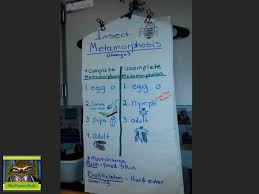 Insect
Metamorphosis
(change)
*Complete Metamorphosis
1. egg
2. larva
3. pupa
4. adult
*Incomplete Metamorphosis
1. egg
2. nymph
3. adult
*must change
Molt - Shed Skin
Exoskeleton - Hard outer